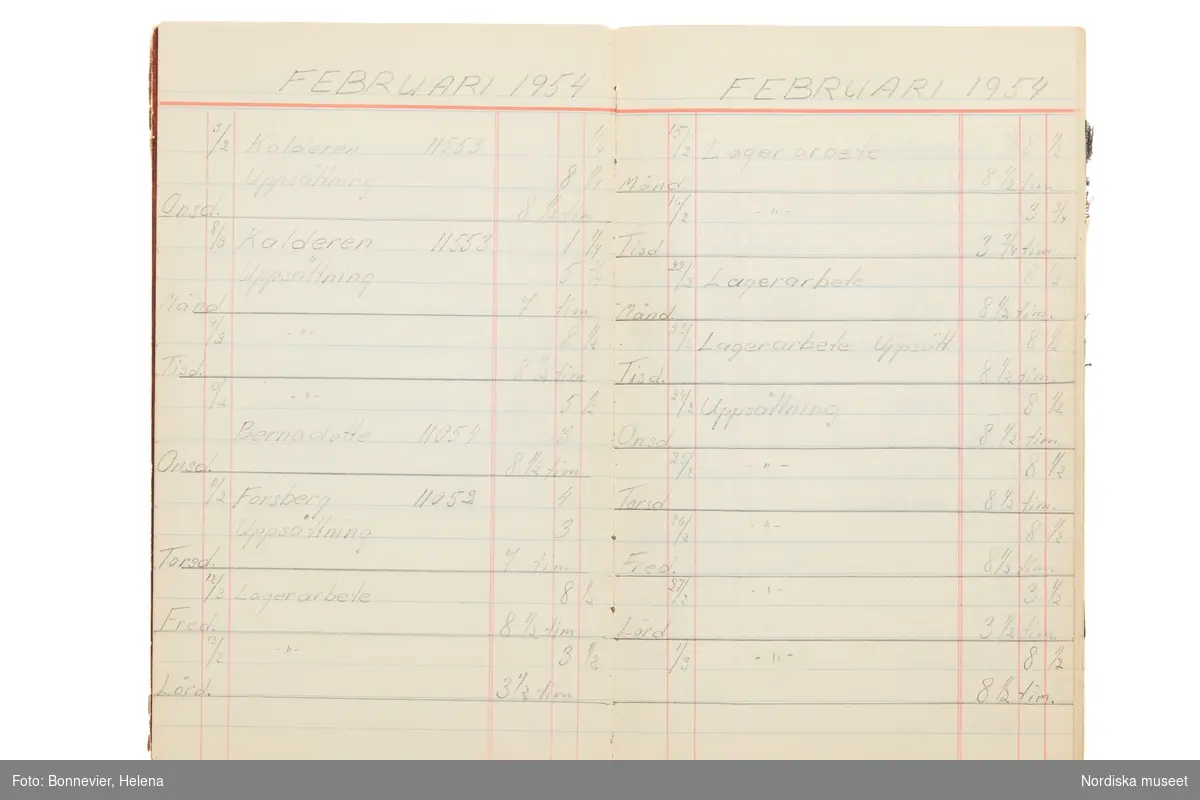 FEBRUARI 1954
3/2 Kalderen 11553 1/4
Uppsättning 8 1/4
Onsd. 8 1/2 tim
8/3 Kalderen 11553 1 1/4
Uppsättning 5 3/4
Månd. 7 tim
9/2 -"- 8 1/2
Tisd. 8 1/2 tim
10/2 -"- 5 1/2
Bernadotte 11054 3
Onsd. 8 1/2 tim
11/2 Forsberg 11052 4
Uppsättning 3
Torsd. 7 tim.
12/3 Lagerarbete 8 1/2
Fred. 8 1/2 tim
13/2 -"- 3 1/2
Lörd. 3 1/2 tim
FEBRUARI 1954
15/2 Lagerarbete 8 1/2
Månd 8 1/2 tim
16/2 -"- 3 3/4
Tisd 3 3/4 tim.
22/2 Lagerarbete 8 1/2
Månd. 8 1/2 tim.
23/2 Lagerarbete Uppsätt. 8 1/2
Tisd. 8 1/2 tim.
24/2 Uppsättning 8 1/2
Onsd. 8 1/2 tim.
25/2 -"- 8 1/2
Torsd 8 1/2 tim.
26/2 -"- 8 1/2
Fred. 8 1/2 tim.
27/2 -"- 3 1/2
Lörd 3 1/2 tim.
1/3 -"- 8 1/2
8 1/2 tim.
Foto: Bonnevier, Helena
Nordiska museet